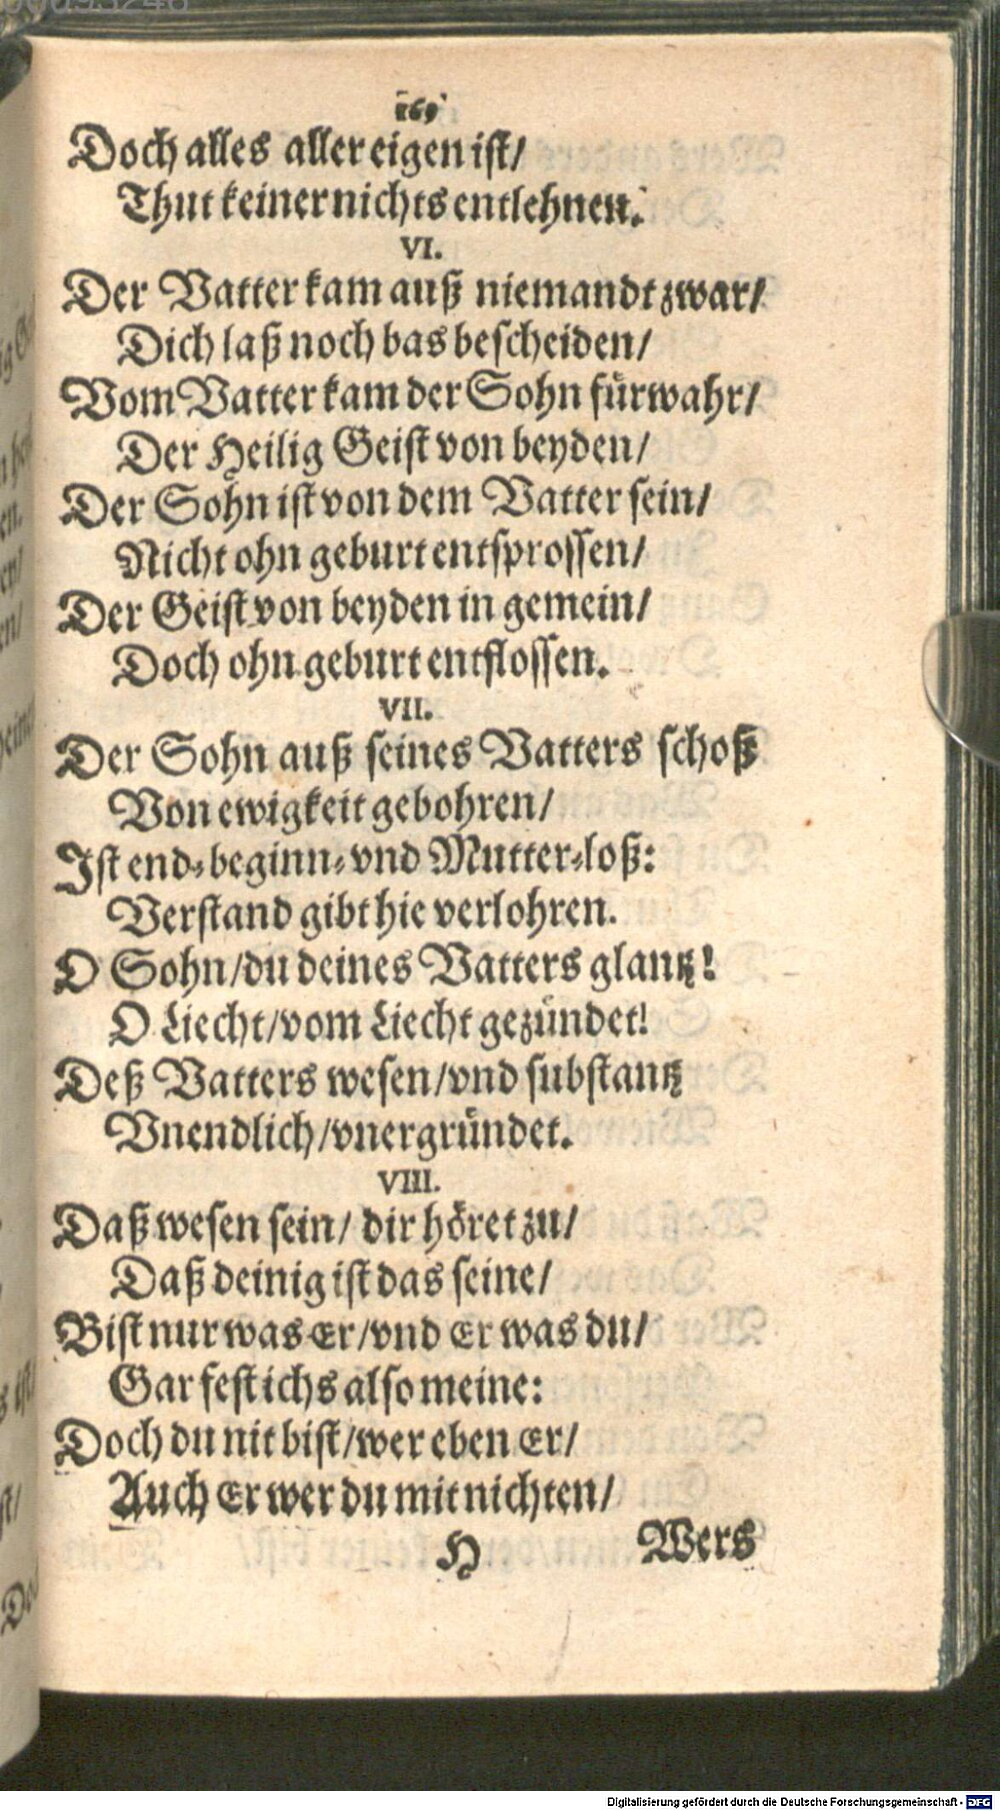 169
Doch alles aller eigen ist/
Thut keiner nichts entlehnen.
VI.
Der Vatter kam auß niemandt zwar/
Dich laß noch bas bescheiden/
Vom Vatter kam der Sohn fürwahr/
Der Heilig Geist von beyden/
Der Sohn ist von dem Vatter sein/
Nicht ohn geburt entsprossen/
Der Geist von beyden in gemein/
Doch ohn geburt entflossen.
VII.
Der Sohn auß seines Vatters schoß
Von ewigkeit gebohren/
Ist end-beginn-vnd Mutter-loß:
Verstand gibt hie verlohren.
O Sohn/du deines Vatters glantz!
O Liecht/vom Liecht gezündet!
Deß Vatters wesen/vnd substantz
Vnendlich/vnergründet.
VIII.
Daß wesen sein/ dir höret zu/
Daß deinig ist das seine/
Bist nur was Er/vnd Er was du/
Gar fest ichs also meine:
Doch du nit bist/wer eben Er/
Auch Er wer du mit nichten/
H Wers
Digitalisierung gefördert durch die Deutsche Forschungsgemeinschaft - DFG